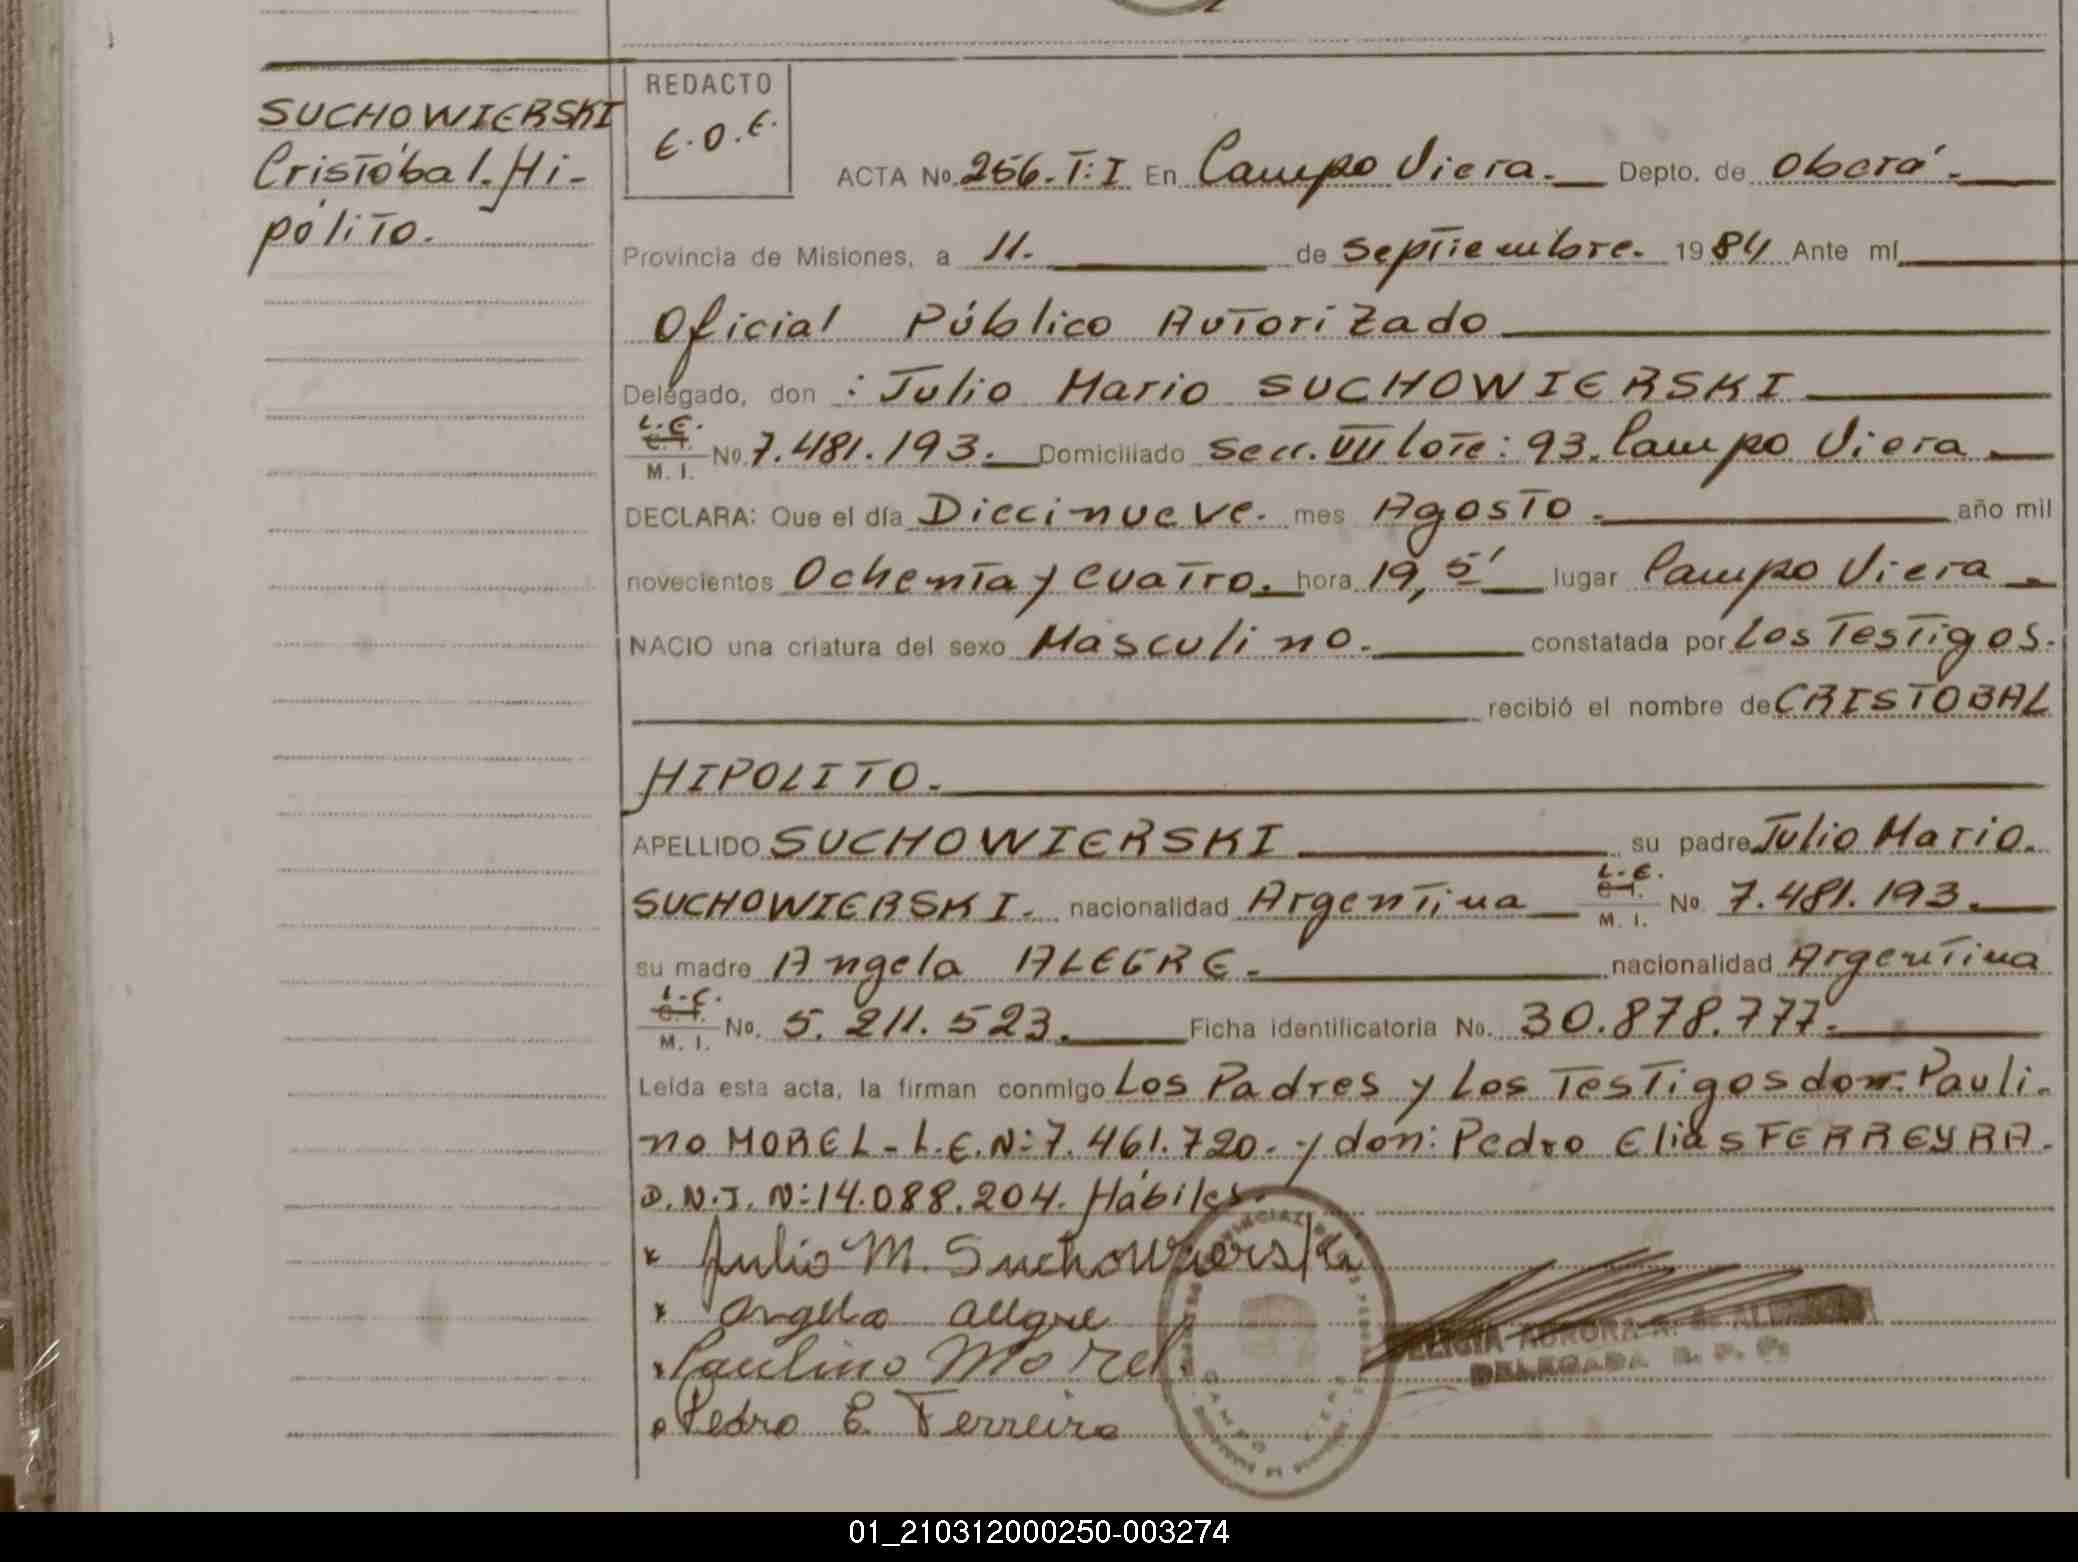 SUCHOWIERSKI
Cristóbal. Hi-
pólito.
REDACTO
E.O.E.
ACTA No. 256. T: I En Campo Viera. Depto. de Oberá.
Provincia de Misiones, a 11. de Septiembre. 1984 Ante mí
Oficial Público Autorizado
Delegado, don : Julio Mario SUCHOWIERSKI
L.E.
C. I.
M. I. No. 7.481.193. Domiciliado Secc. VII lote: 93. Campo Viera
DECLARA: Que el día Diecinueve. mes Agosto. año mil
novecientos Ochenta y Cuatro. hora 19,5' lugar Campo Viera
NACIO una criatura del sexo Masculino. constatada por Los Testigos.
recibió el nombre de CRISTOBAL
HIPOLITO.
APELLIDO SUCHOWIERSKI su padre Julio Mario.
SUCHOWIERSKI. nacionalidad Argentina L.E. C. I. M. I. No 7.481.193.
su madre Angela ALEGRE. nacionalidad Argentina
L.C.
C. I.
M. I. No. 5.211.523. Ficha identificatoria No. 30.878.777.
Leída esta acta, la firman conmigo Los Padres y Los Testigos don: Pauli-
no MOREL - L.E.N: 7.461.720. y don: Pedro Elias FERREYRA.
D.N.I. N: 14.088.204. Hábiles.
Julio M. Suchowierski
Angela Alegre
Paulino Morel
Pedro E. Ferreira
AURORA
DELEGADA R. P. P.
CAMPO
01_210312000250-003274